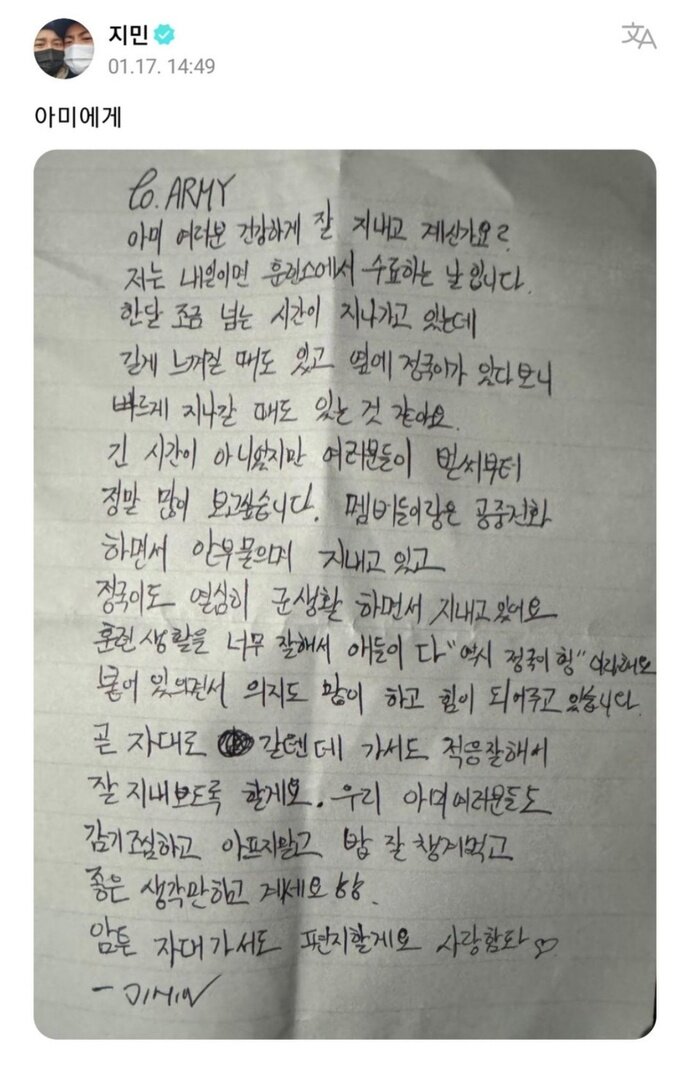 지민
01.17. 14:49
아미에게
To. ARMY
아미 여러분 건강하게 잘 지내고 계신가요?
저는 내일이면 훈련소에서 수료하는 날입니다.
한달 조금 넘는 시간이 지나가고 있는데
길게 느껴질 때도 있고 옆에 정국이가 있다보니
빠르게 지나갈 때도 있는 것 같아요.
긴 시간이 아니였지만 여러분들이 벌써부터
정말 많이 보고싶습니다. 멤버들이랑은 공중전화
하면서 안부물으며 지내고 있고
정국이도 열심히 군생활 하면서 지내고 있어요
훈련 생활을 너무 잘해서 애들이 다 "역시 정국이 형" 이라해요
붙어 있으면서 의지도 많이 하고 힘이 되어주고 있습니다.
곧 자대로 갈텐데 가서도 적응잘해서
잘 지내보도록 할게요. 우리 아미여러분들도
감기조심하고 아프지말고 밥 잘 챙겨먹고
좋은 생각만하고 계세요
암튼 자대가서도 편지할게요 사랑함다♡
- JIMIN